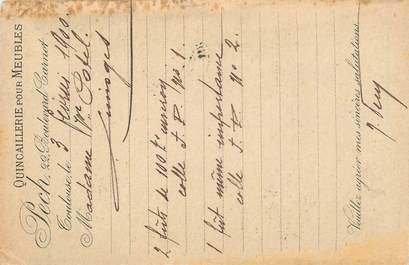 QUINCAILLERIE POUR MEUBLES
Pech, 22, Boulevard Carnot
Toulouse, le 3 février 1900
Madame Vve
Limoges
2 fûts de 100 k. environ
colle J. P. No. 1
1 fut même importance
colle J. P. No 2.
Veuillez agréer mes sincères salutations